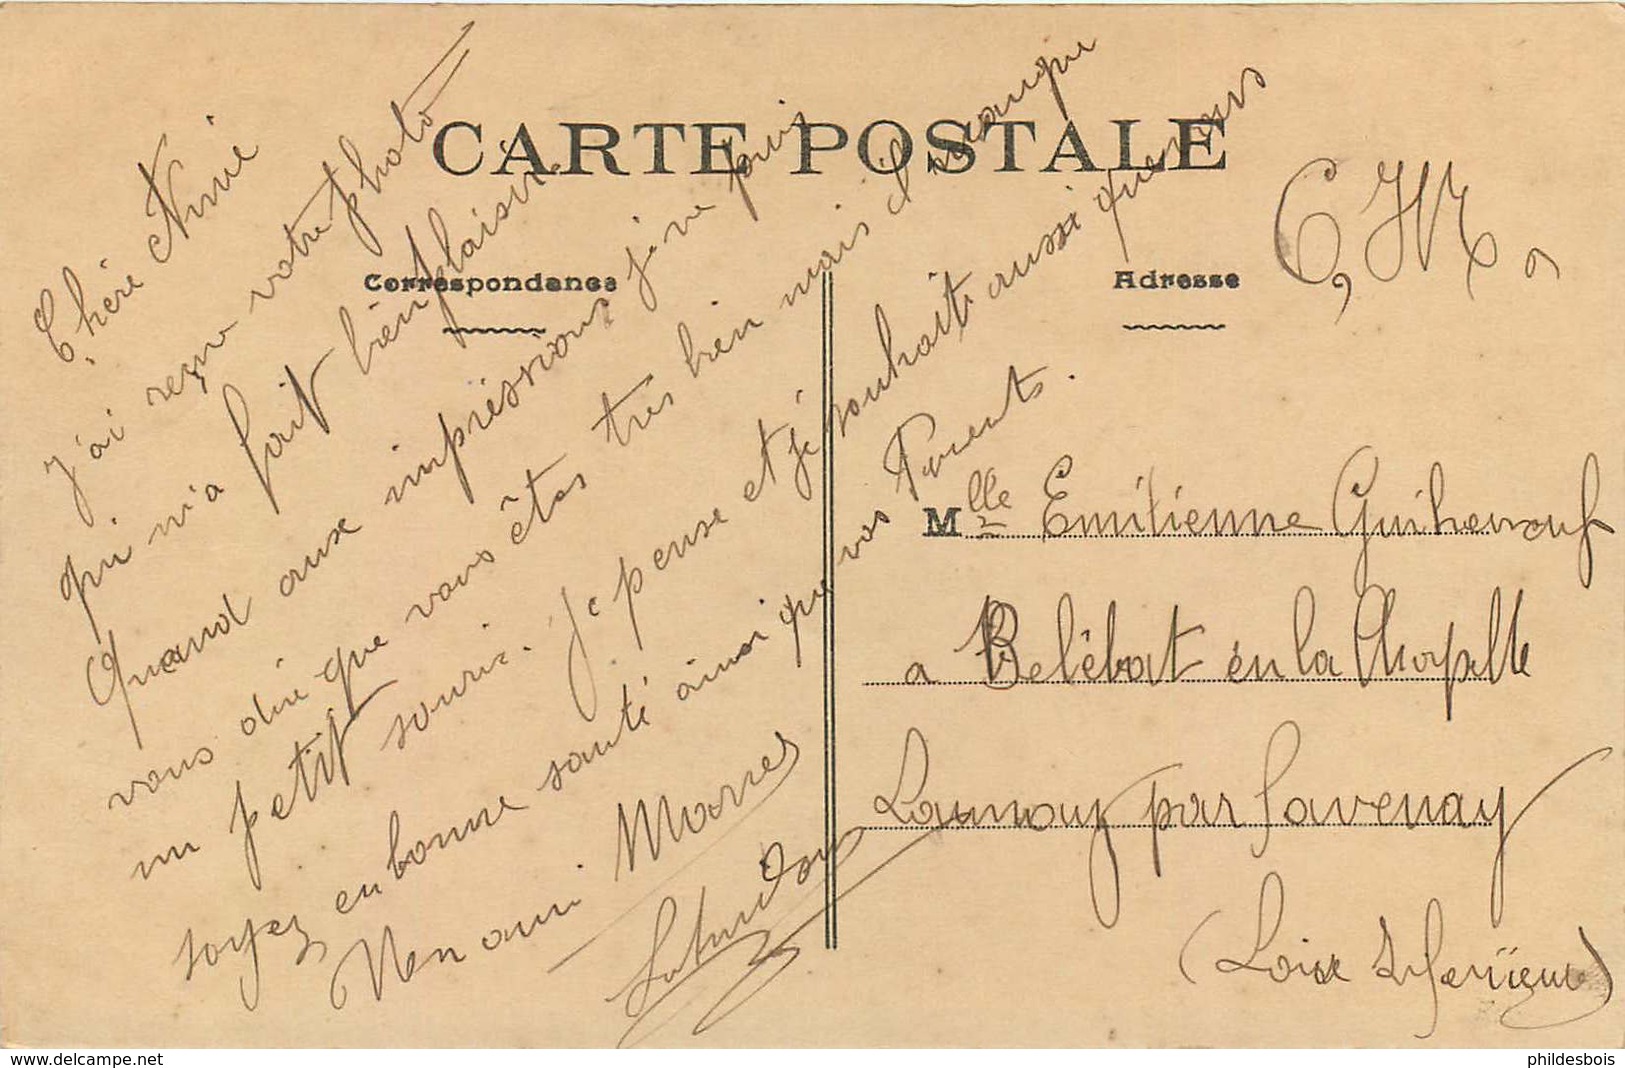 CARTE POSTALE
Correspondance
Adresse
Chère Nini
j'ai reçu votre photo
qui m'a fait bien plaisir
Quand aux impréssions je ne puis
vous dire que vous êtes très bien mais il manque
un petit sourir. Je pense et je souhaite aussi que vous
soyez en bonne santé ainsi que vos Parents.
Mon ami
Mlle Emilienne Guihenouf
a Belébat en la Chapelle
Launay par Savenay
(Loire Inferieure)
www.delcampe.net
phildesbois